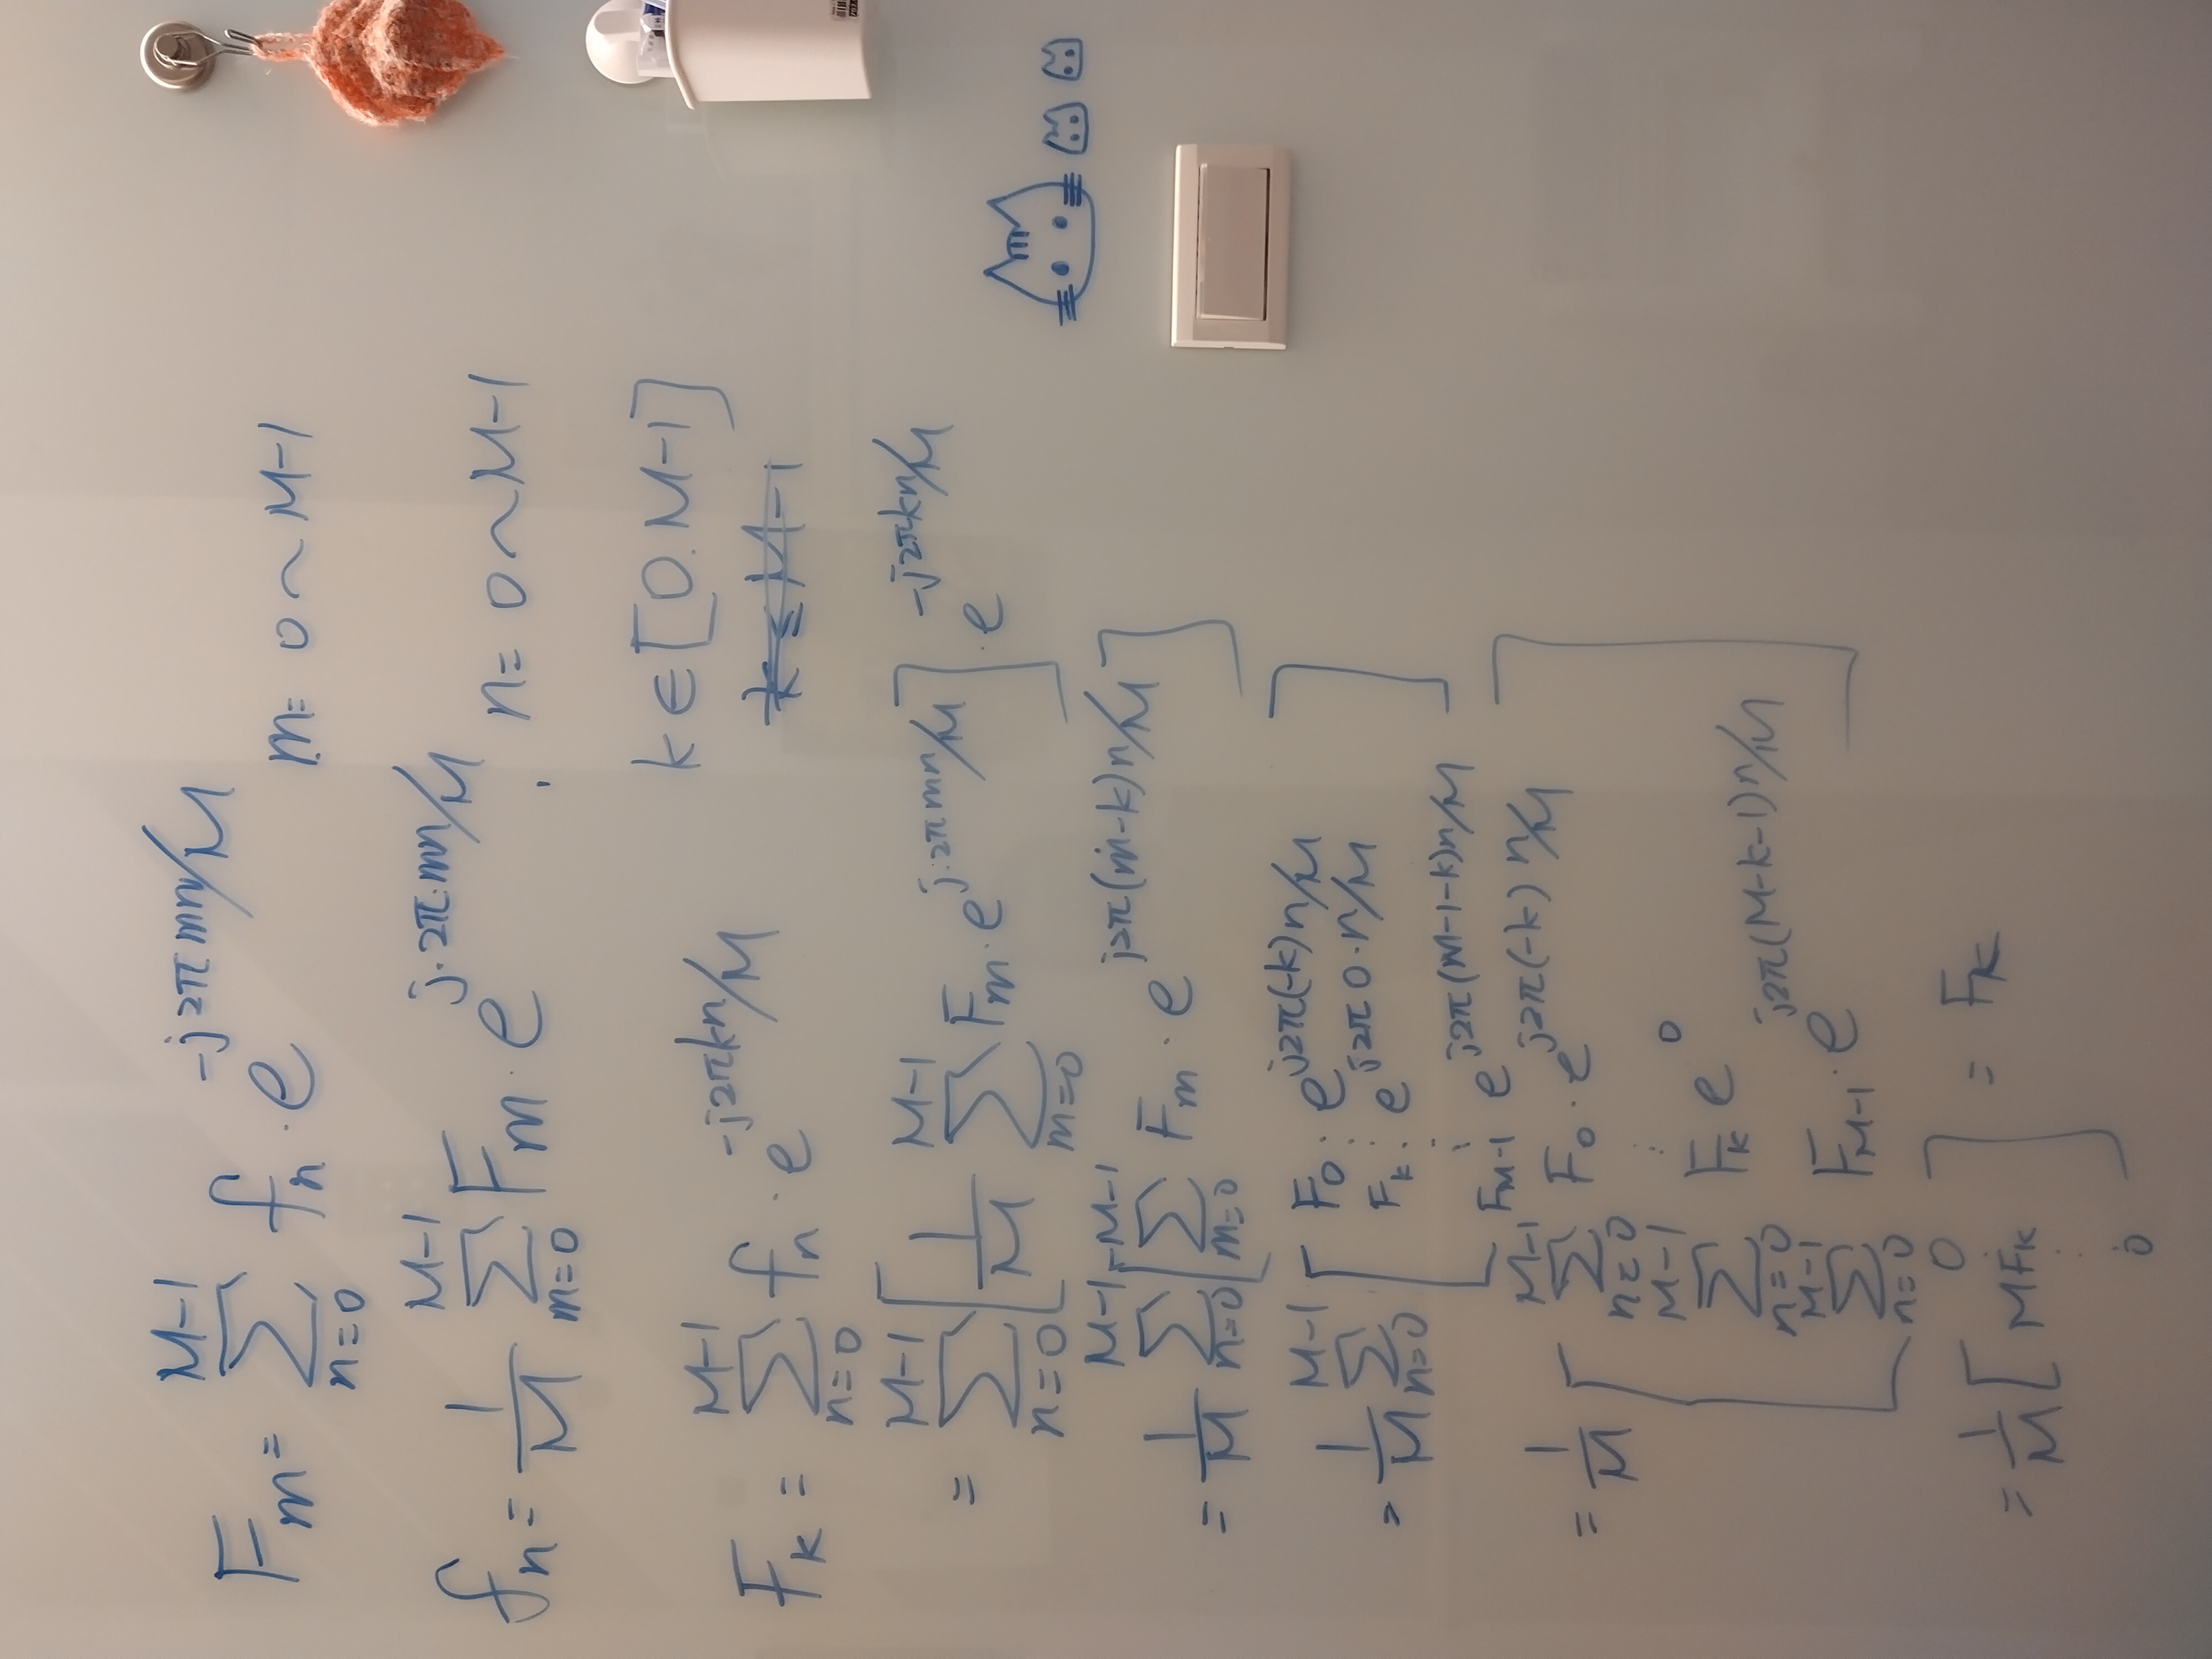 F_m = \sum_{n=0}^{M-1} f_n \cdot e^{-j2\pi mn/M} m = 0 \sim M-1
f_n = \frac{1}{M} \sum_{m=0}^{M-1} F_m \cdot e^{j \cdot 2\pi \cdot mn/M} , n = 0 \sim M-1
k \in [0. M-1]
F_k = \sum_{n=0}^{M-1} f_n \cdot e^{-j2\pi kn/M}
k \le M-1
= \sum_{n=0}^{M-1} [ \frac{1}{M} \sum_{m=0}^{M-1} F_m \cdot e^{j \cdot 2\pi mn/M} ] \cdot e^{-j2\pi kn/M}
= \frac{1}{M} \sum_{n=0}^{M-1} [ \sum_{m=0}^{M-1} F_m \cdot e^{j2\pi (m-k)n/M} ]
= \frac{1}{M} \sum_{n=0}^{M-1} [ F_0 \cdot e^{j2\pi(-k)n/M}
⋮
F_k \cdot e^{j2\pi 0 \cdot n/M}
⋮
F_{M-1} e^{j2\pi(M-1-k)n/M} ]
= \frac{1}{M} [ \sum_{n=0}^{M-1} F_0 \cdot e^{j2\pi(-k)n/M}
⋮
\sum_{n=0}^{M-1} F_k e^0
\sum_{n=0}^{M-1} F_{M-1} \cdot e^{j2\pi(M-k-1)n/M} ]
= \frac{1}{M} [ 0
⋮
M F_k
⋮
0 ] = F_k